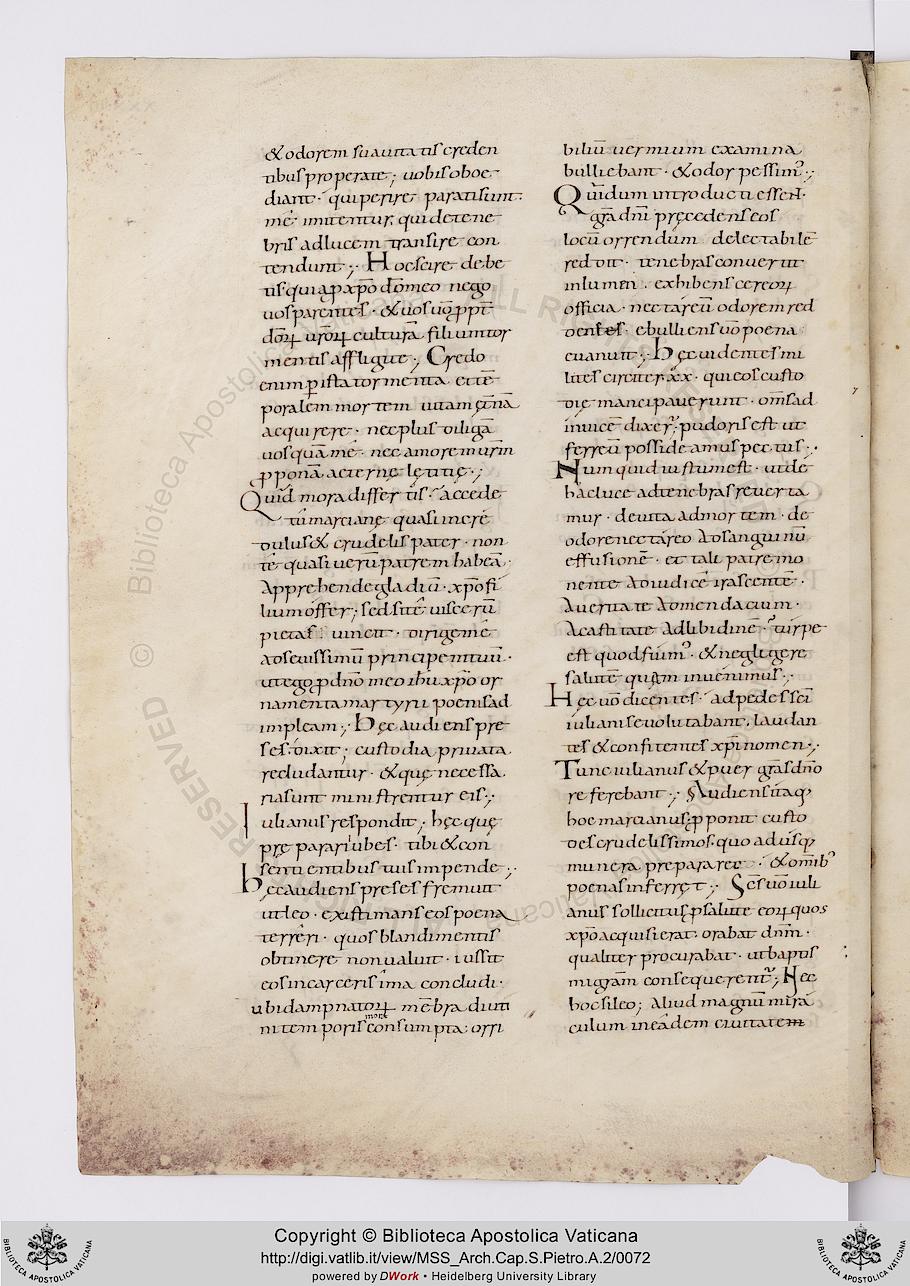 &odorem suauitatis creden
tibus properate; uobis oboe
diant· qui perire parati sunt·
me imitentur, qui de tene
bris ad lucem transire con
tendunt; Hoc scire debe
tis quia p xp̄o dōmeo nego
uos parentes· & uos uō ppt̄
dōꝝ ur̄oꝝ culturā filium tor
mentis affligite; Credo
enim p ista tormenta et tē
poralem mortem uitam et̄nā
acquirere· nec plus diligā
uos quā me· nec amorem ur̄m
pponā aeternę lętitię;
Quid mora differtis· accede
tu marciane quasi incre
dulus & crudelis pater· non
te quasi uerū patrem habeā·
Apprehende gladiū· xp̄o fi
lium offer; sed si te uiscerū
pietas uincit· dirige me
ad seuissimū principem tuū·
ut ego p dn̄o meo ih̄u xp̄o or
namenta martyrii poenis ad
impleam; hęc audiens pre
ses· dixit; custodia priuata
recludantur· & quę necessa
ria sunt ministrentur eis;
Iulianus respondit; hęc quę
prę parari iubes· tibi & con
sentientibus tuis impende;
hęc audiens preses fremuit
ut leo· existimans eos poena
terreri· quos blandimentis
obtinere non ualuit· iussit
eos in carceris ima concludi·
ubi dampnatoꝝ mēbra diuti
ni temporis more consumpta· orri
biliū uermium examina
bulliebant· & odor pessim᾽;
Quidum introducti essent·
gr̄a dn̄i pręcedens eos
locū orrendum delectabilē
reddit· tenebras conuertit
in lumen· exhibens cereoꝝ
officia· nectareū odorem red
dentes· ebulliens uō poena
euanuit; hęc uidentes mi
lites circiter xx· qui eos custo
dię mancipauerunt· om̄s ad
inuicē dixer; pudoris est ut
ferreū possideamus pectus;
Numquid iustum est· ut de
hac luce ad tenebras reuerta
mur· de uita ad mortem· de
odore nectareo ad sanguinū
effusionē· et tali patre mo
nente ad iudicē irascentē·
A ueritate ad mendacium·
A castitate ad libidinē· turpe
est quod fuim᾽· & neglegere
salutē quam inuenimus;
Hęc uō dicentes· ad pedes sc̄i
iuliani se uolutabant, laudan
tes & confitentes xp̄i nomen;
Tunc iulianus & puer gr̄as dn̄o
referebant; Audiens itaq
hoc marcianus pponit custo
des crudelissimos· quo adusq
munera prepararet· & omīb᾽
poenas inferręt; Sc̄s uō iuli
anus sollicitus p salute eoꝝ quos
xp̄o acquisierat· orabat dn̄m·
qualiter procurabat· ut baptis
mi gr̄am consequerent̄; Nec
hoc sileo; Aliud magnū mira
culum in eadem ciuitatem
Copyright © Biblioteca Apostolica Vaticana
http://digi.vatlib.it/view/MSS_Arch.Cap.S.Pietro.A.2/0072
powered by DWork • Heidelberg University Library